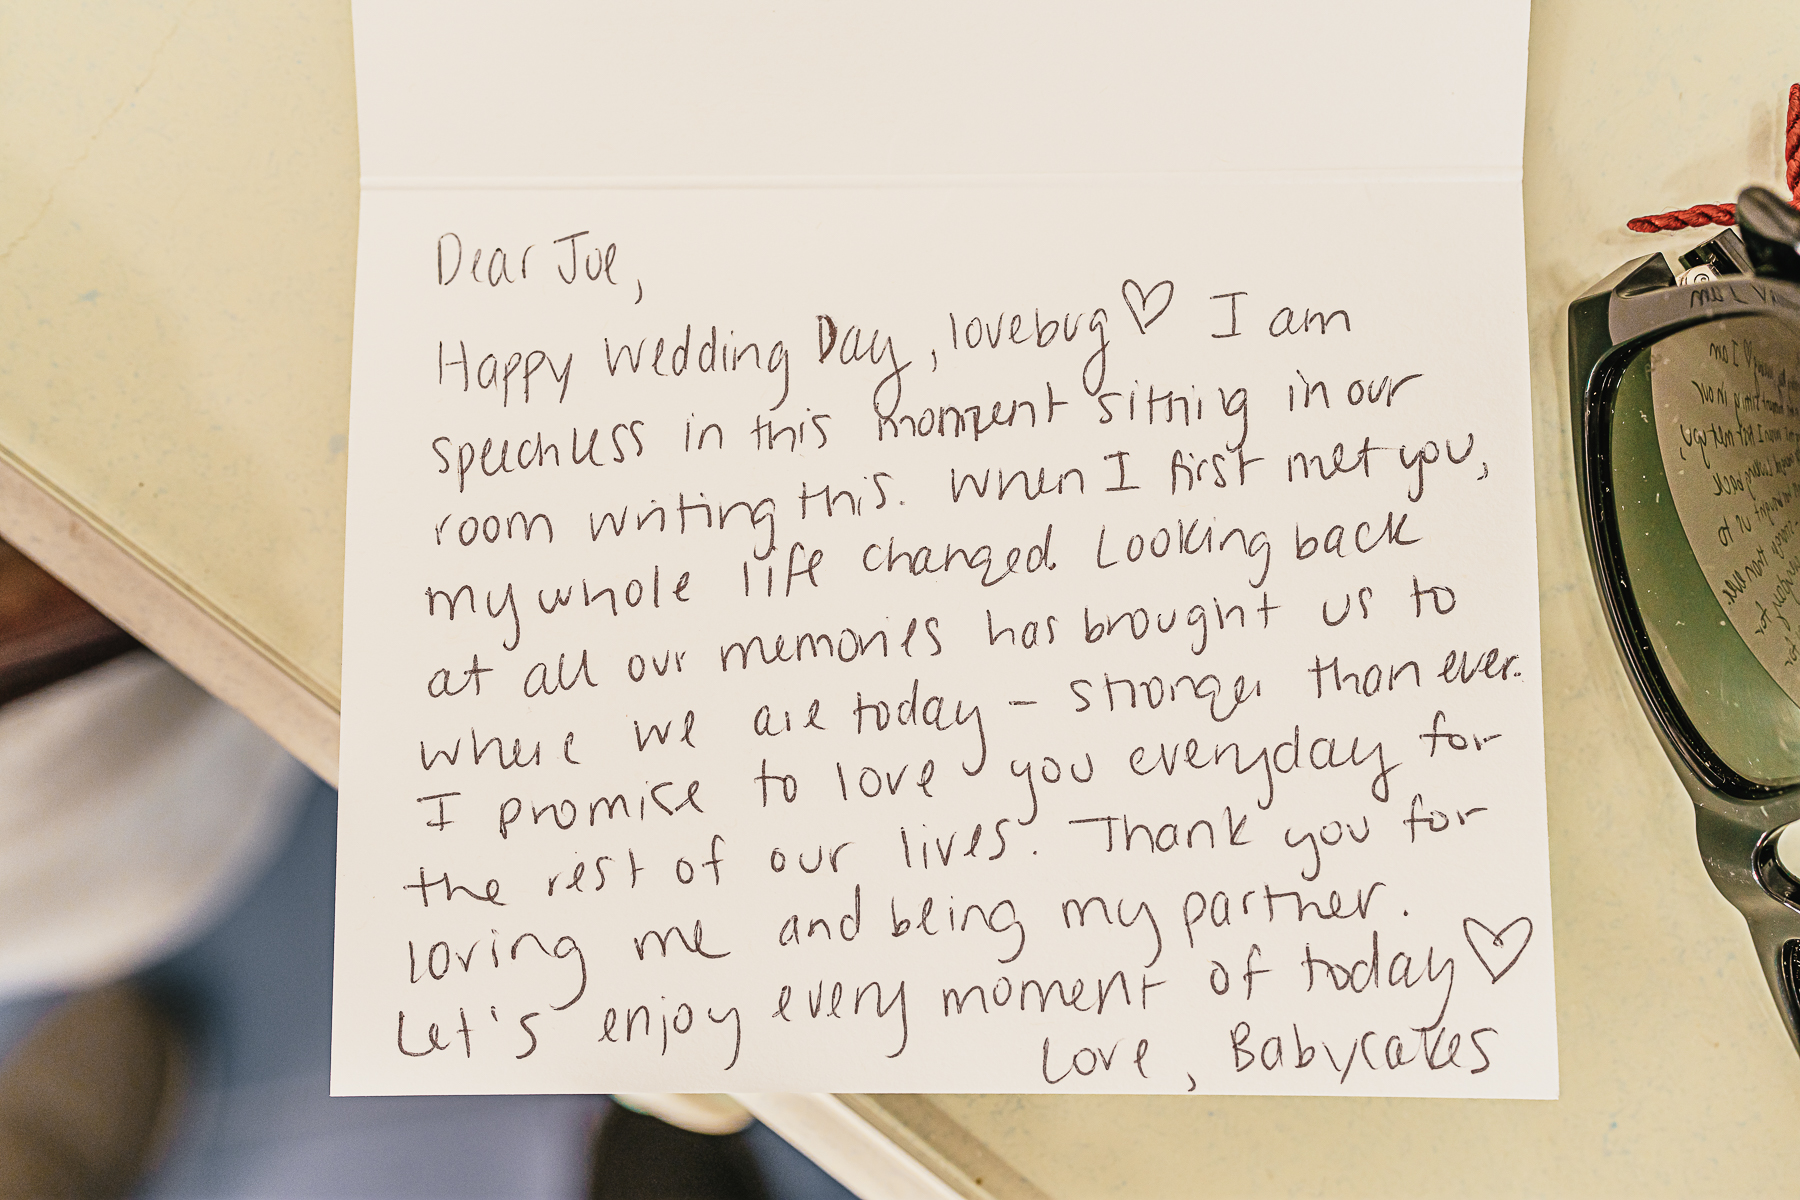 Dear Joe,
Happy Wedding Day, lovebug ♡ I am
speechless in this moment sitting in our
room writing this. When I first met you,
my whole life changed. Looking back
at all our memories has brought us to
where we are today - stronger than ever.
I promise to love you everyday for
the rest of our lives. Thank you for
loving me and being my partner.
Let's enjoy every moment of today ♡
Love, Babycakes